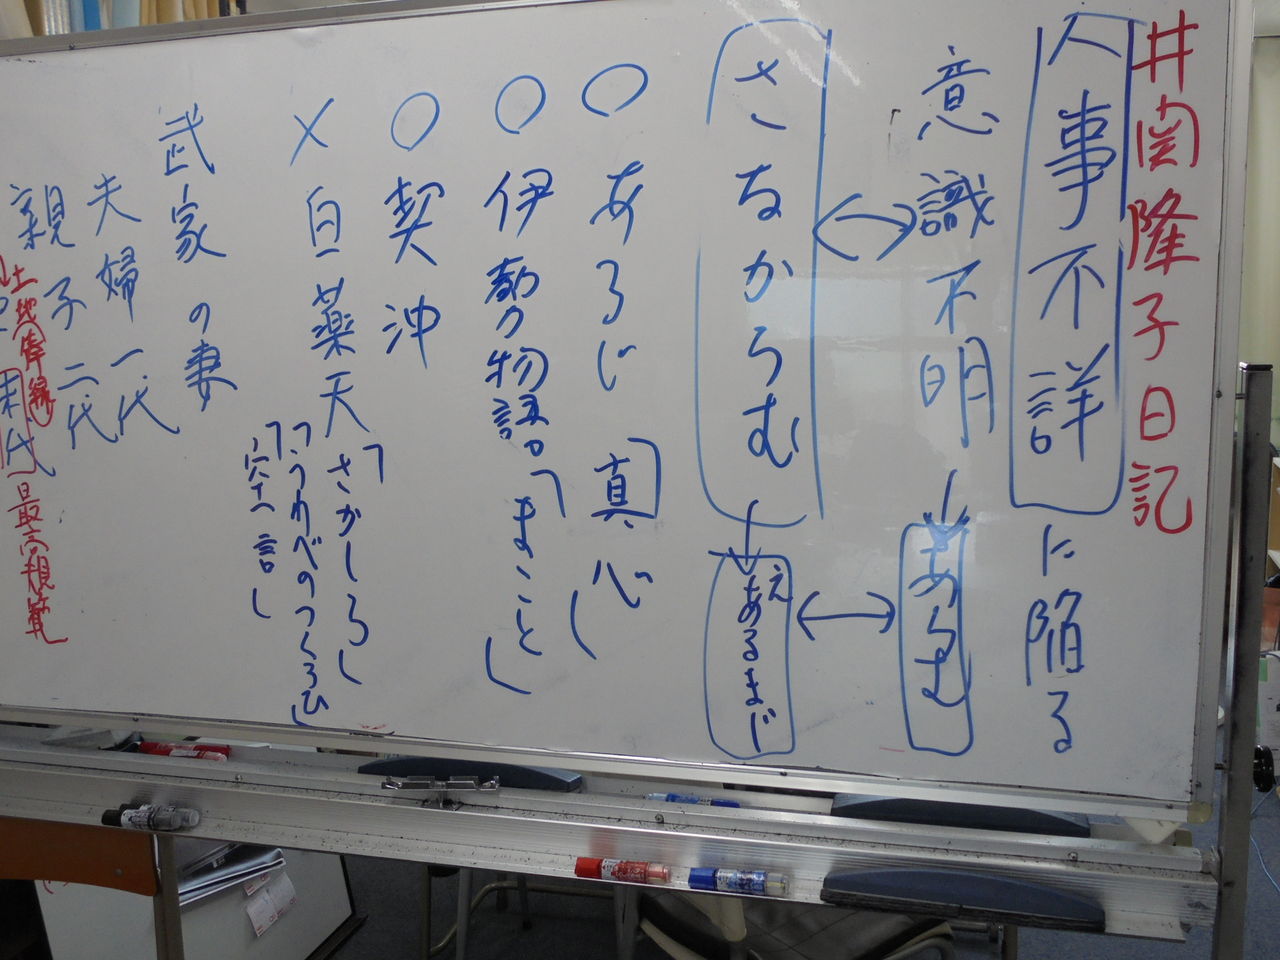 井関隆子日記
人事不詳に陥る
意識不明→あらむ
さるなからむ→あるまじ
え
○あるじ「真心」
○伊勢物語「まこと」
○契沖
×白薬天「さかしらし
「うわべのつくろひ」
「空言し
武家の妻
夫婦一代
親子二代
末代
最高規範